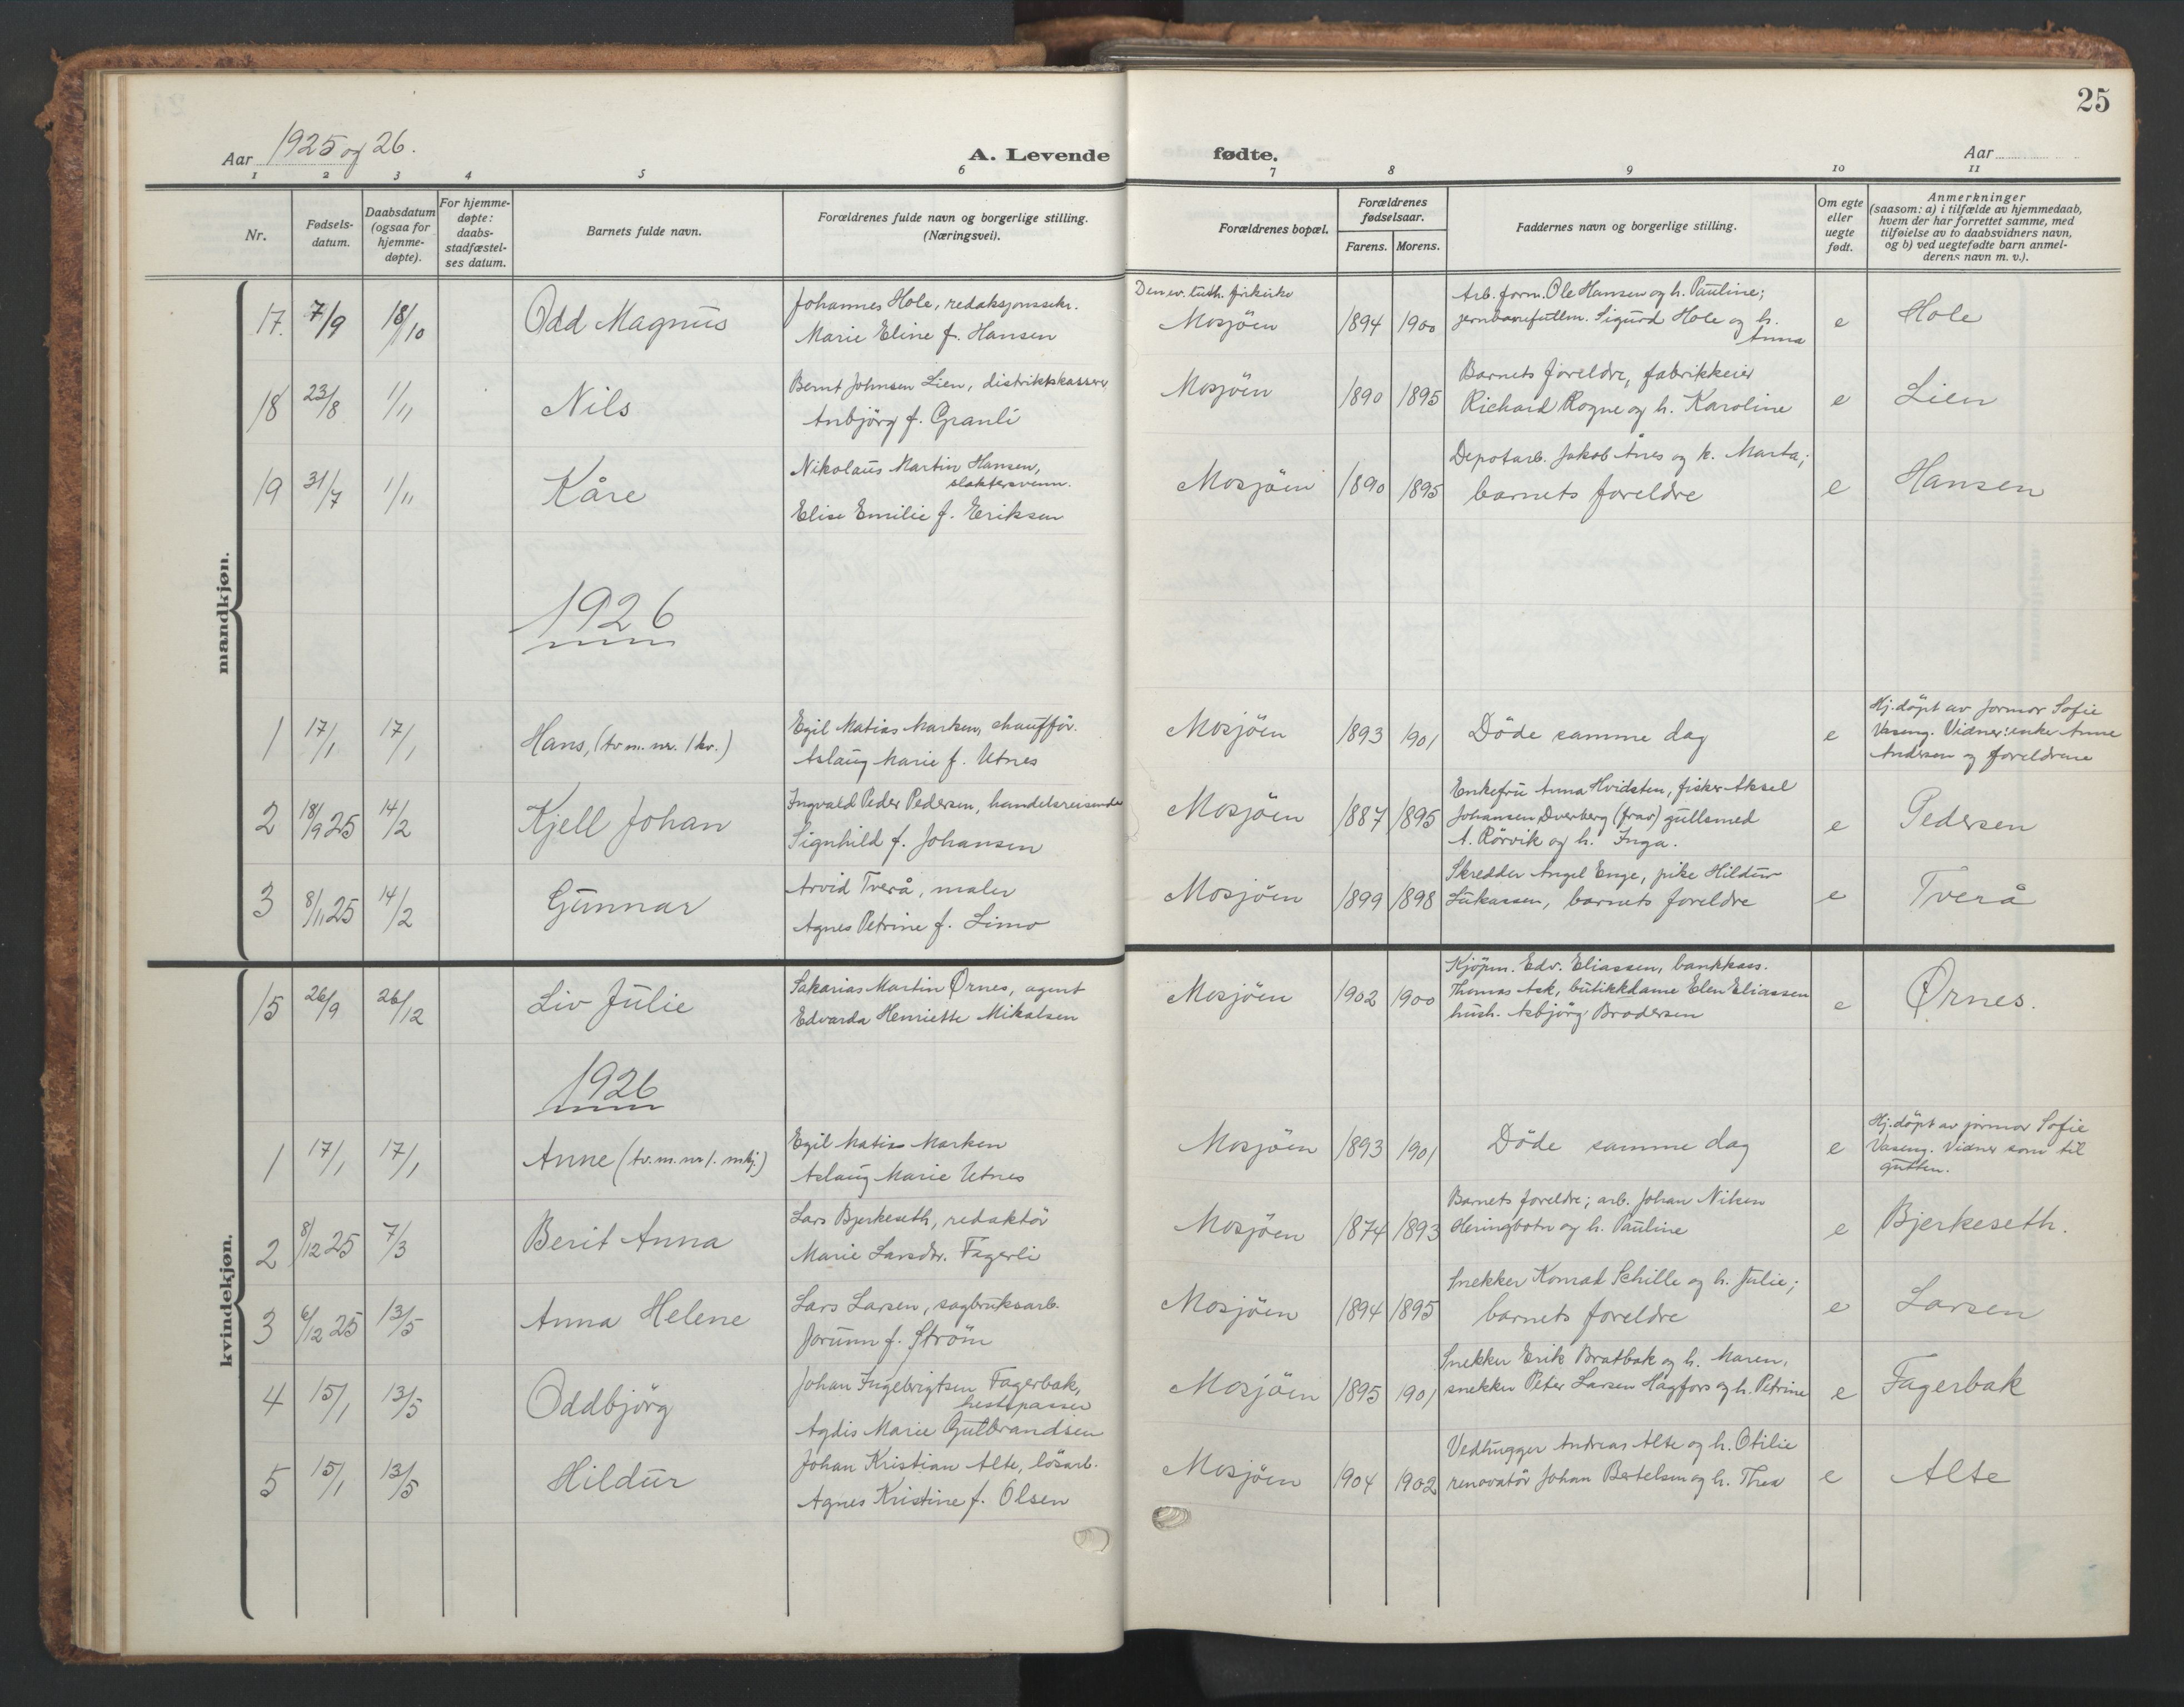 25
Aar 1925 og 26.
A. Levende fødte.
Aar
1 2 3 4 5 6 7 8 9 10 11
Nr.
Fødsels-
datum.
Daabsdatum
(ogsaa for
hjemme-
døpte).
For hjemme-
døpte:
daabs-
stadfæstel-
ses datum.
Barnets fulde navn.
Forældrenes fulde navn og borgerlige stilling.
(Næringsvei).
Forældrenes bopæl.
Forældrenes
fødselsaar.
Farens. Morens.
Faddernes navn og borgerlige stilling.
Om egte
eller
uegte
født.
Anmerkninger
(saasom: a) i tilfælde av hjemmedaab,
hvem der har forrettet samme, med
tilføielse av to daabsvidners navn,
og b) ved uegtefødte barn anmel-
derens navn m. v.).
mandkjøn.
17. 7/9 18/10 Odd Magnus
Johannes Hole, redaksjonssekr.
Marie Eline f. Hansen
Den ev. luth. frikirke
Mosjöen 1894 1900
Arb.form. Ole Hansen og h. Pauline;
jernbanefullm. Sigurd Hole og h.
Anna
e Hole
18 23/8 1/11 Nils
Bernt Johnsen Lien, distriktskasserer
Anbjörg f. Granli
Mosjöen 1890 1895
Barnets foreldre, fabrikkeier
Richard Rogne og h. Karoline
e Lien
19 31/7 1/11 Kåre
Nikolaus Martin Hansen,
slaktersvenn.
Elise Emilie f. Eriksen
Mosjöen 1890 1895
Depotarb. Jakob Ånes og h. Marta;
barnets foreldre
e Hansen
1926
1 17/1 17/1 Hans, (tv.m. nr. 1 kv.)
Egil Matias Marken, chaufför.
Aslaug Marie f. Utnes
Mosjöen 1893 1901
Döde samme dag
e
Hj.döpt av formor Sofie
Vaseng. Vidner: enke Anne
Andersen og foreldrene
2 18/9 25 14/2 Kjell Johan
Ingvald Peder Pedersen, handelsreisende
Signhild f. Johansen
Mosjöen 1887 1895
Enkefru Anna Hvidsten, fisker Aksel
Johansen Dverberg (frav) gullsmed
A. Rörvik og h. Inga.
e Pedersen
3 8/11 25 14/2 Gunnar
Arvid Tverå, maler
Agnes Petrine f. Limo
Mosjöen 1899 1898
Skredder Angel Enge, pike Hildur
Lukassen, barnets foreldre
e Tverå
kvindekjøn.
15 26/9 26/12 Liv Julie
Sakarias Martin Ørnes, agent
Edvarda Henriette Mikalsen
Mosjöen 1902 1900
Kjöpm. Edv. Eliassen, bankkass.
Thomas Ask, butikkdame Elen Eliassen
hush. Asbjörg Brodersen
e Ørnes.
1926
1 17/1 17/1 Anne (tv.m. nr 1. mkj.)
Egil Matias Marken
Aslaug Marie Utnes
Mosjöen 1893 1901
Döde samme dag
e
Hj.döpt av jormor Sofie
Vaseng. Vidner som til
gutten.
2 8/12 25 7/3 Berit Anna
Lars Bjerkeseth, redaktör
Marie Larsdtr. Fagerli
Mosjöen 1874 1893
Barnets foreldre; arb. Johan Niken
Heringbotn og h. Pauline
e Bjerkeseth.
3 6/12 25 13/5 Anna Helene
Lars Larsen, sagbruksarb.
Jorunn f. Ström
Mosjöen 1894 1895
Snekker Konrad Schille og h. Julie;
barnets foreldre
e Larsen
4 15/1 13/5 Oddbjörg
Johan Ingebrigtsen Fagerbak,
hestepasser
Agdis Marie Gulbrandsen
Mosjöen 1895 1901
Snekker Erik Bratbak og h. Maren,
snekker Peter Larsen Hagfors og h. Petrine
e Fagerbak
5 15/1 13/5 Hildur
Johan Kristian Alte, lösarb.
Agnes Kristine f. Olsen
Mosjöen 1904 1902
Vedhugger Andreas Alte og h. Otilie
renovatör Johan Bertelsen og h. Thea
e Alte